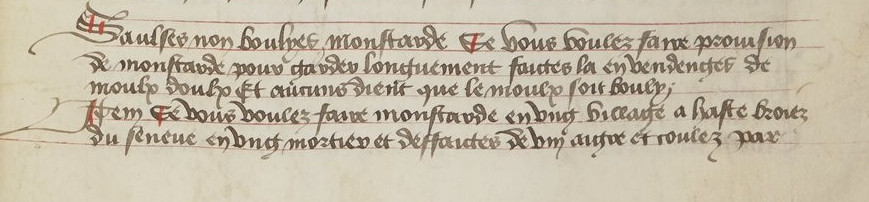 Saulses non boulyes moustarde Se vous voulez faire provision
de moustarde pour garder longuement faictes la en vendenges de
moulx doulx Et aucuns dient que le moulx soit bouly
Item Se vous voulez faire moustarde en ung village a haste broiez
du seneve en ung mortier et deffaictes de vin aigre et coulez par